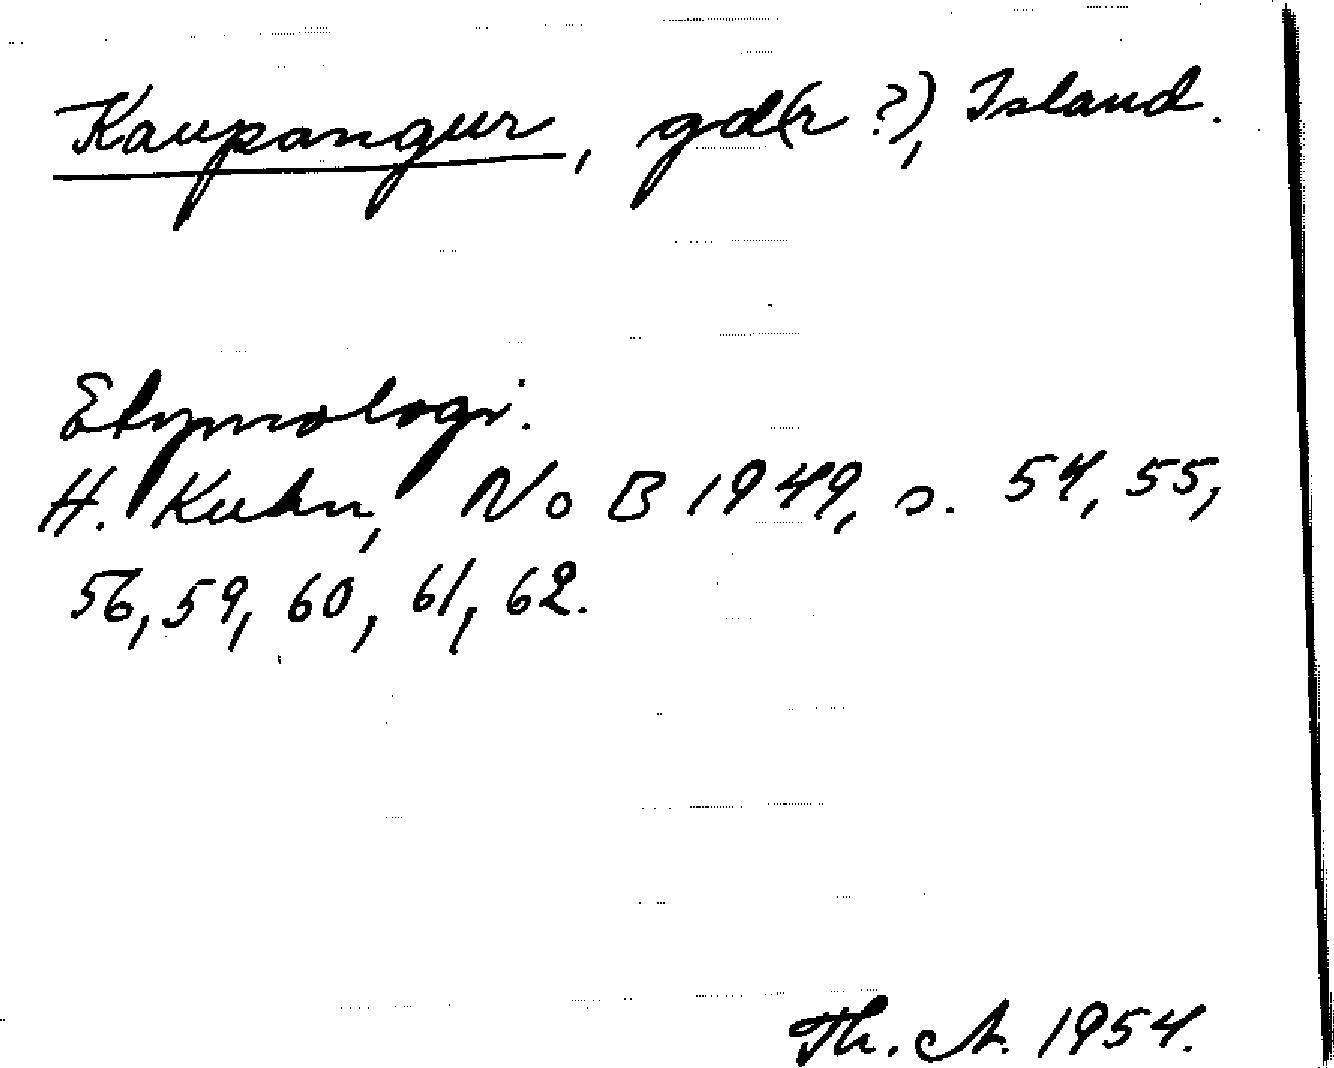 Kaupangur, gd(r ?), Island.
Etymologi.
H. Kuhn, No B 1949, s. 54, 55,
56, 59, 60, 61, 62.
Th. A. 1954.